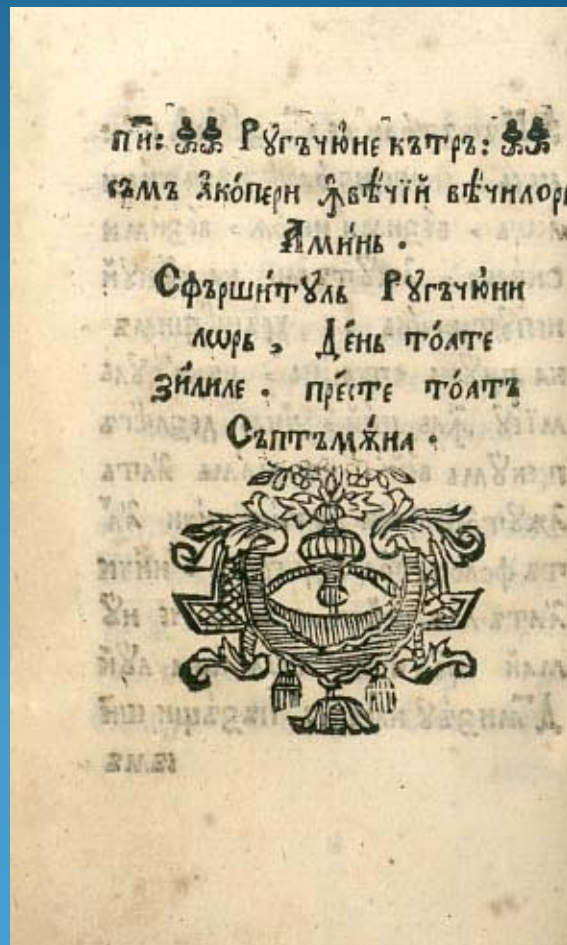 п҃и: Рꙋгъчю́не кътръ:
съмъ а҆копери ꙟ҆вѣ́чїй вѣ́чилорь
А҆ми́нь.
Сфърши́тꙋль Рꙋгъчю́ни
лѡрь, Де́нь то́ате
зи́лиле. пре́сте то́атъ
Съптъмѫ́на.